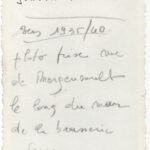 Vers 1935/40
photo prise rue
de
le long du mur
de la brasserie